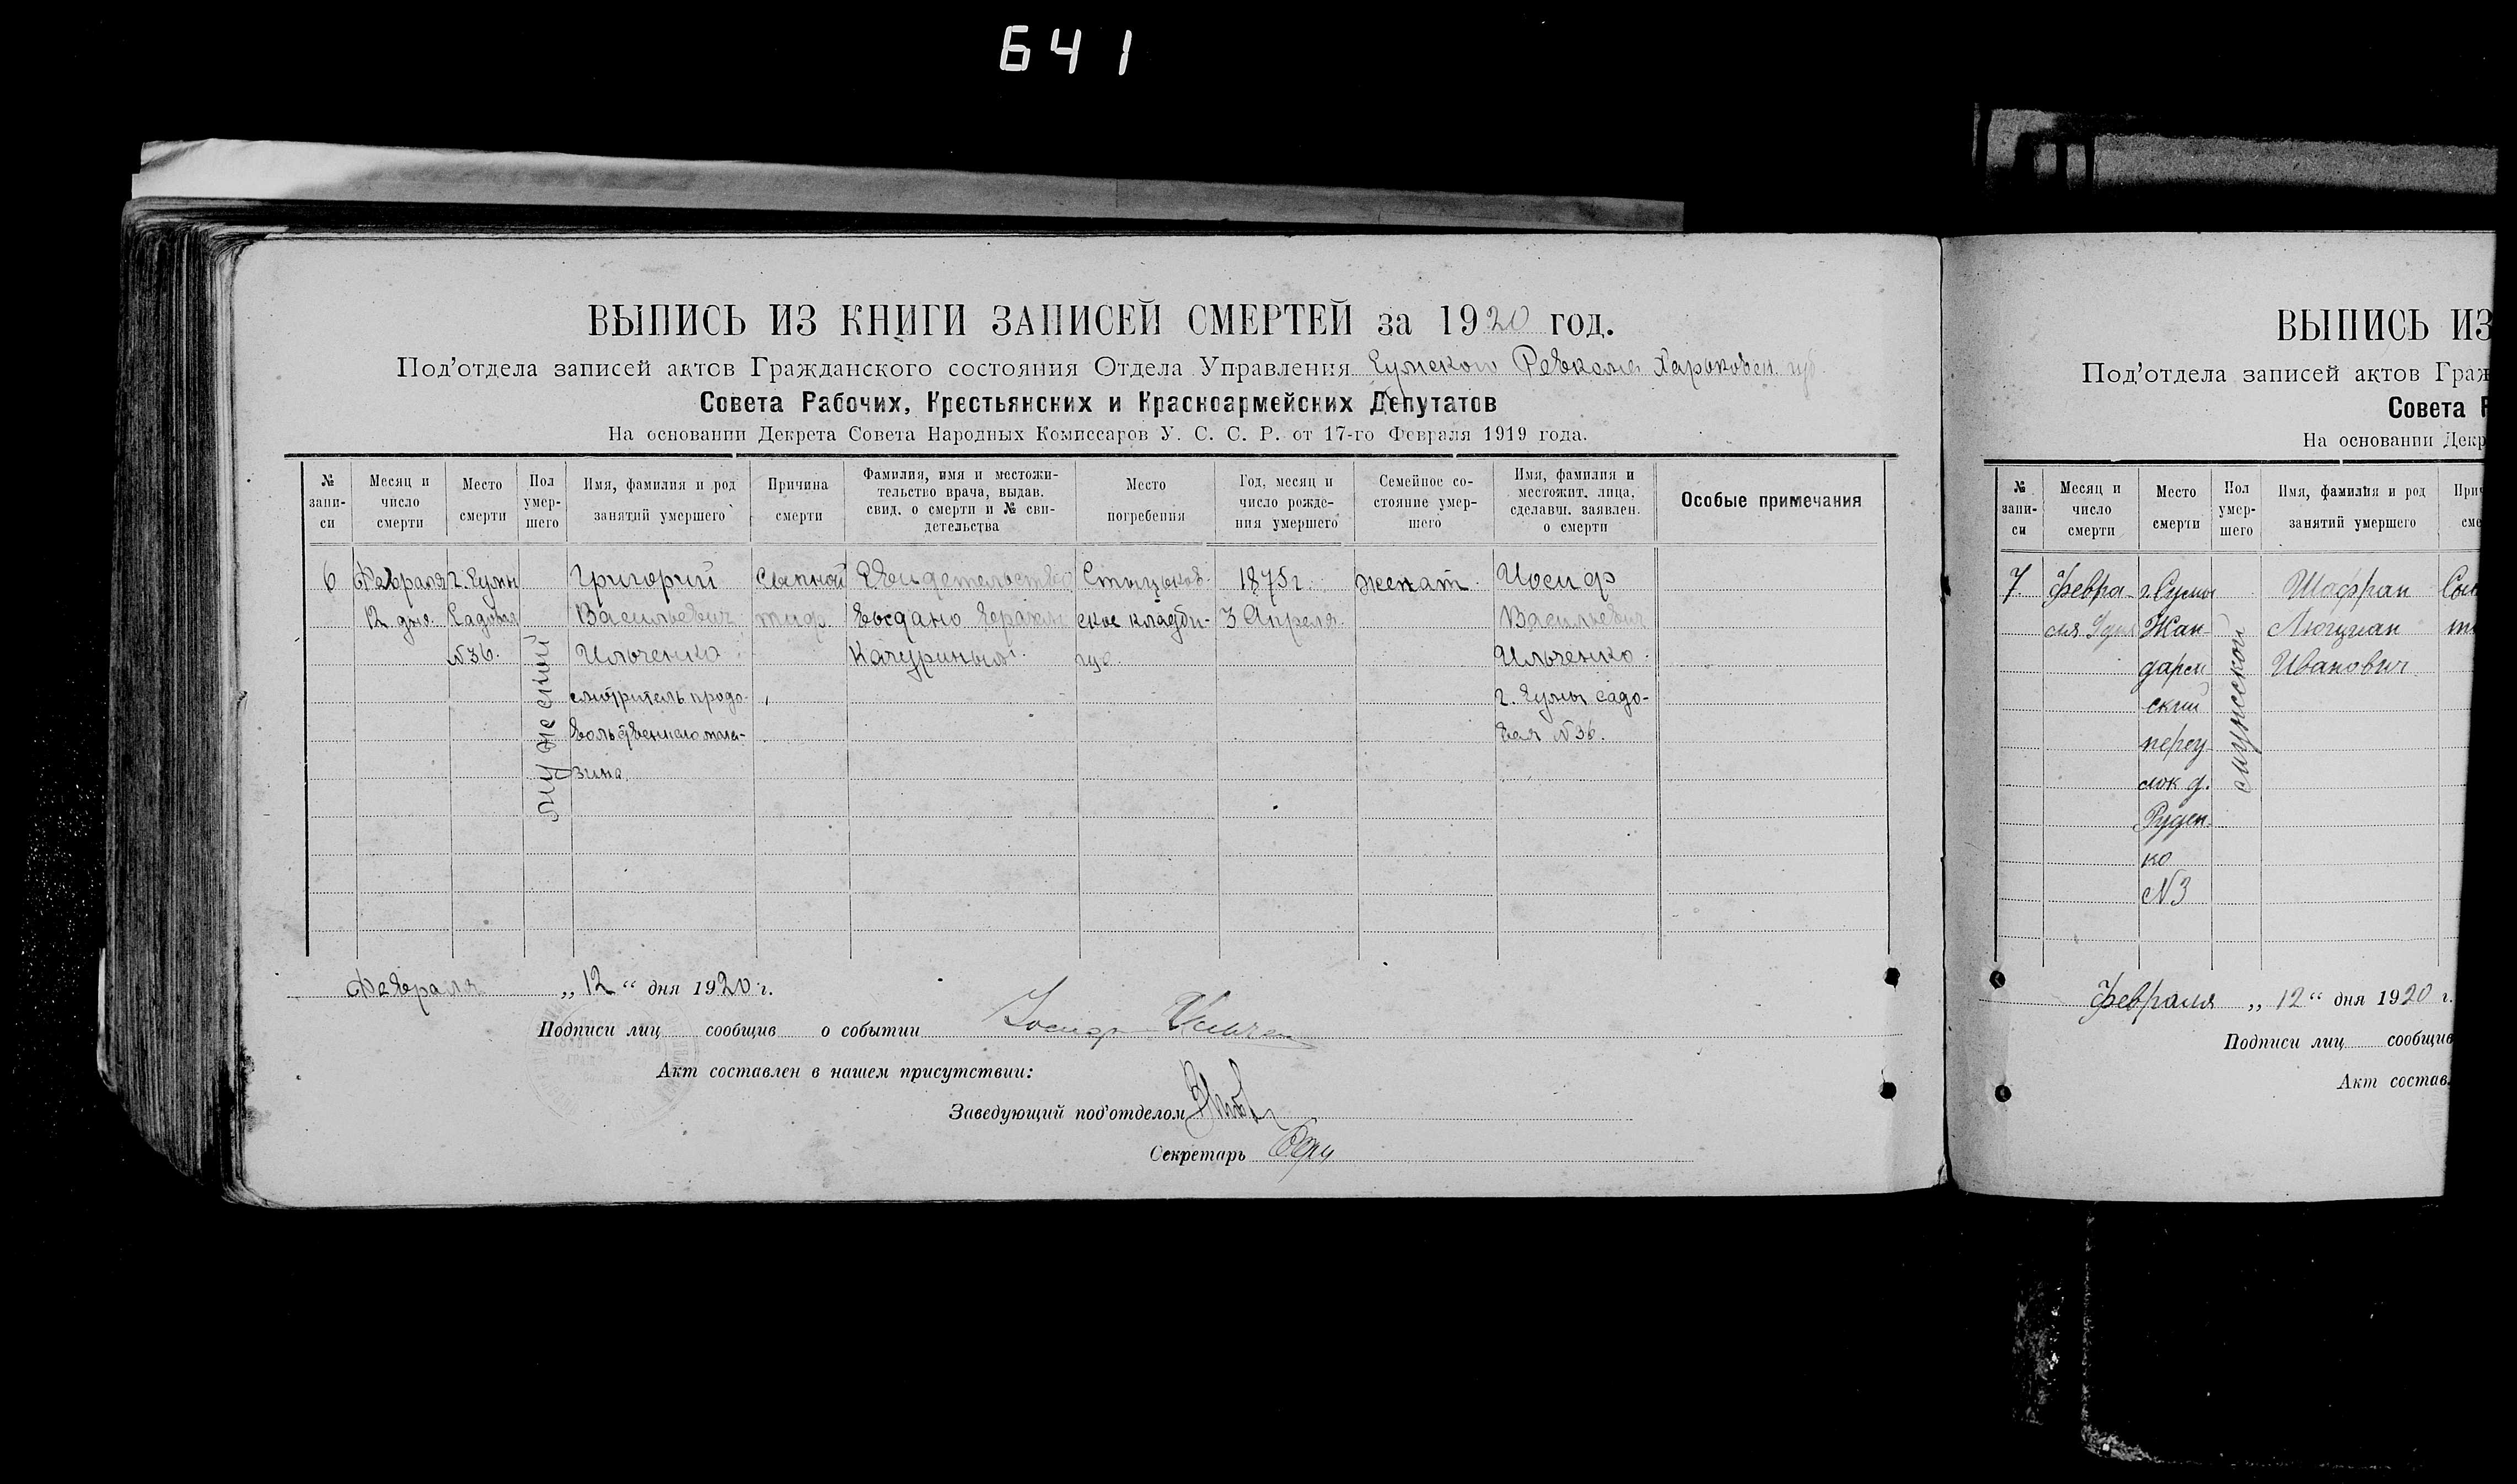 641
ВЫПИСЬ ИЗ КНИГИ ЗАПИСЕЙ СМЕРТЕЙ за 1920 год.
Под'отдела записей актов Гражданского состояния Отдела Управления Сумского Ревкома Харьковск. губ.
Совета Рабочих, Крестьянских и Красноармейских Депутатов
На основании Декрета Совета Народных Комиссаров У. С. С. Р. от 17-го Февраля 1919 года.
№ запи-
си
Месяц и
число
смерти
Место
смерти
Пол
умер-
шего
Имя, фамилия и род
занятий умершего
Причина
смерти
Фамилия, имя и местожи-
тельство врача, выдав.
свид. о смерти и № сви-
детельства
Место
погребения
Год, месяц и
число рожде-
ния умершего
Семейное со-
стояние умер-
шего
Имя, фамилия и
местожит. лица,
сделавш. заявлен.
о смерти
Особые примечания
6
Февраля
12 дня.
г. Сумы
Садовая
№36.
мужеский
Григорий
Васильевич
Ильченко
смотритель продо-
вольственного мага-
зина
Сыпной
тиф.
Свидетельство
выдано врачом
Качуриным.
ское кладби-
1875 г.
3 Апреля.
женат.
Иосиф
Васильевич
Ильченко.
г. Сумы садо-
вая №36.
Февраля „12“ дня 1920 г.
Подписи лиц сообщив о событии Иосиф
Акт составлен в нашем присутствии:
Заведующий под'отделом
Секретарь
ВЫПИСЬ ИЗ
Под'отдела записей актов Граж
Совета Р
На основании Декр
№
запи-
си
Месяц и
число
смерти
Место
смерти
Пол
умер-
шего
Имя, фамилия и род
занятий умершего
Прич
сме
7.
февра-
ля
г. Сумы
Жан-
дарм
ский
переу
лок д.
Руден-
ко
№3
мужской
Шаффран
Люциан
Иванович
Сып
ти
Февраля „12“ дня 1920 г.
Подписи лиц сообщив
Акт состав